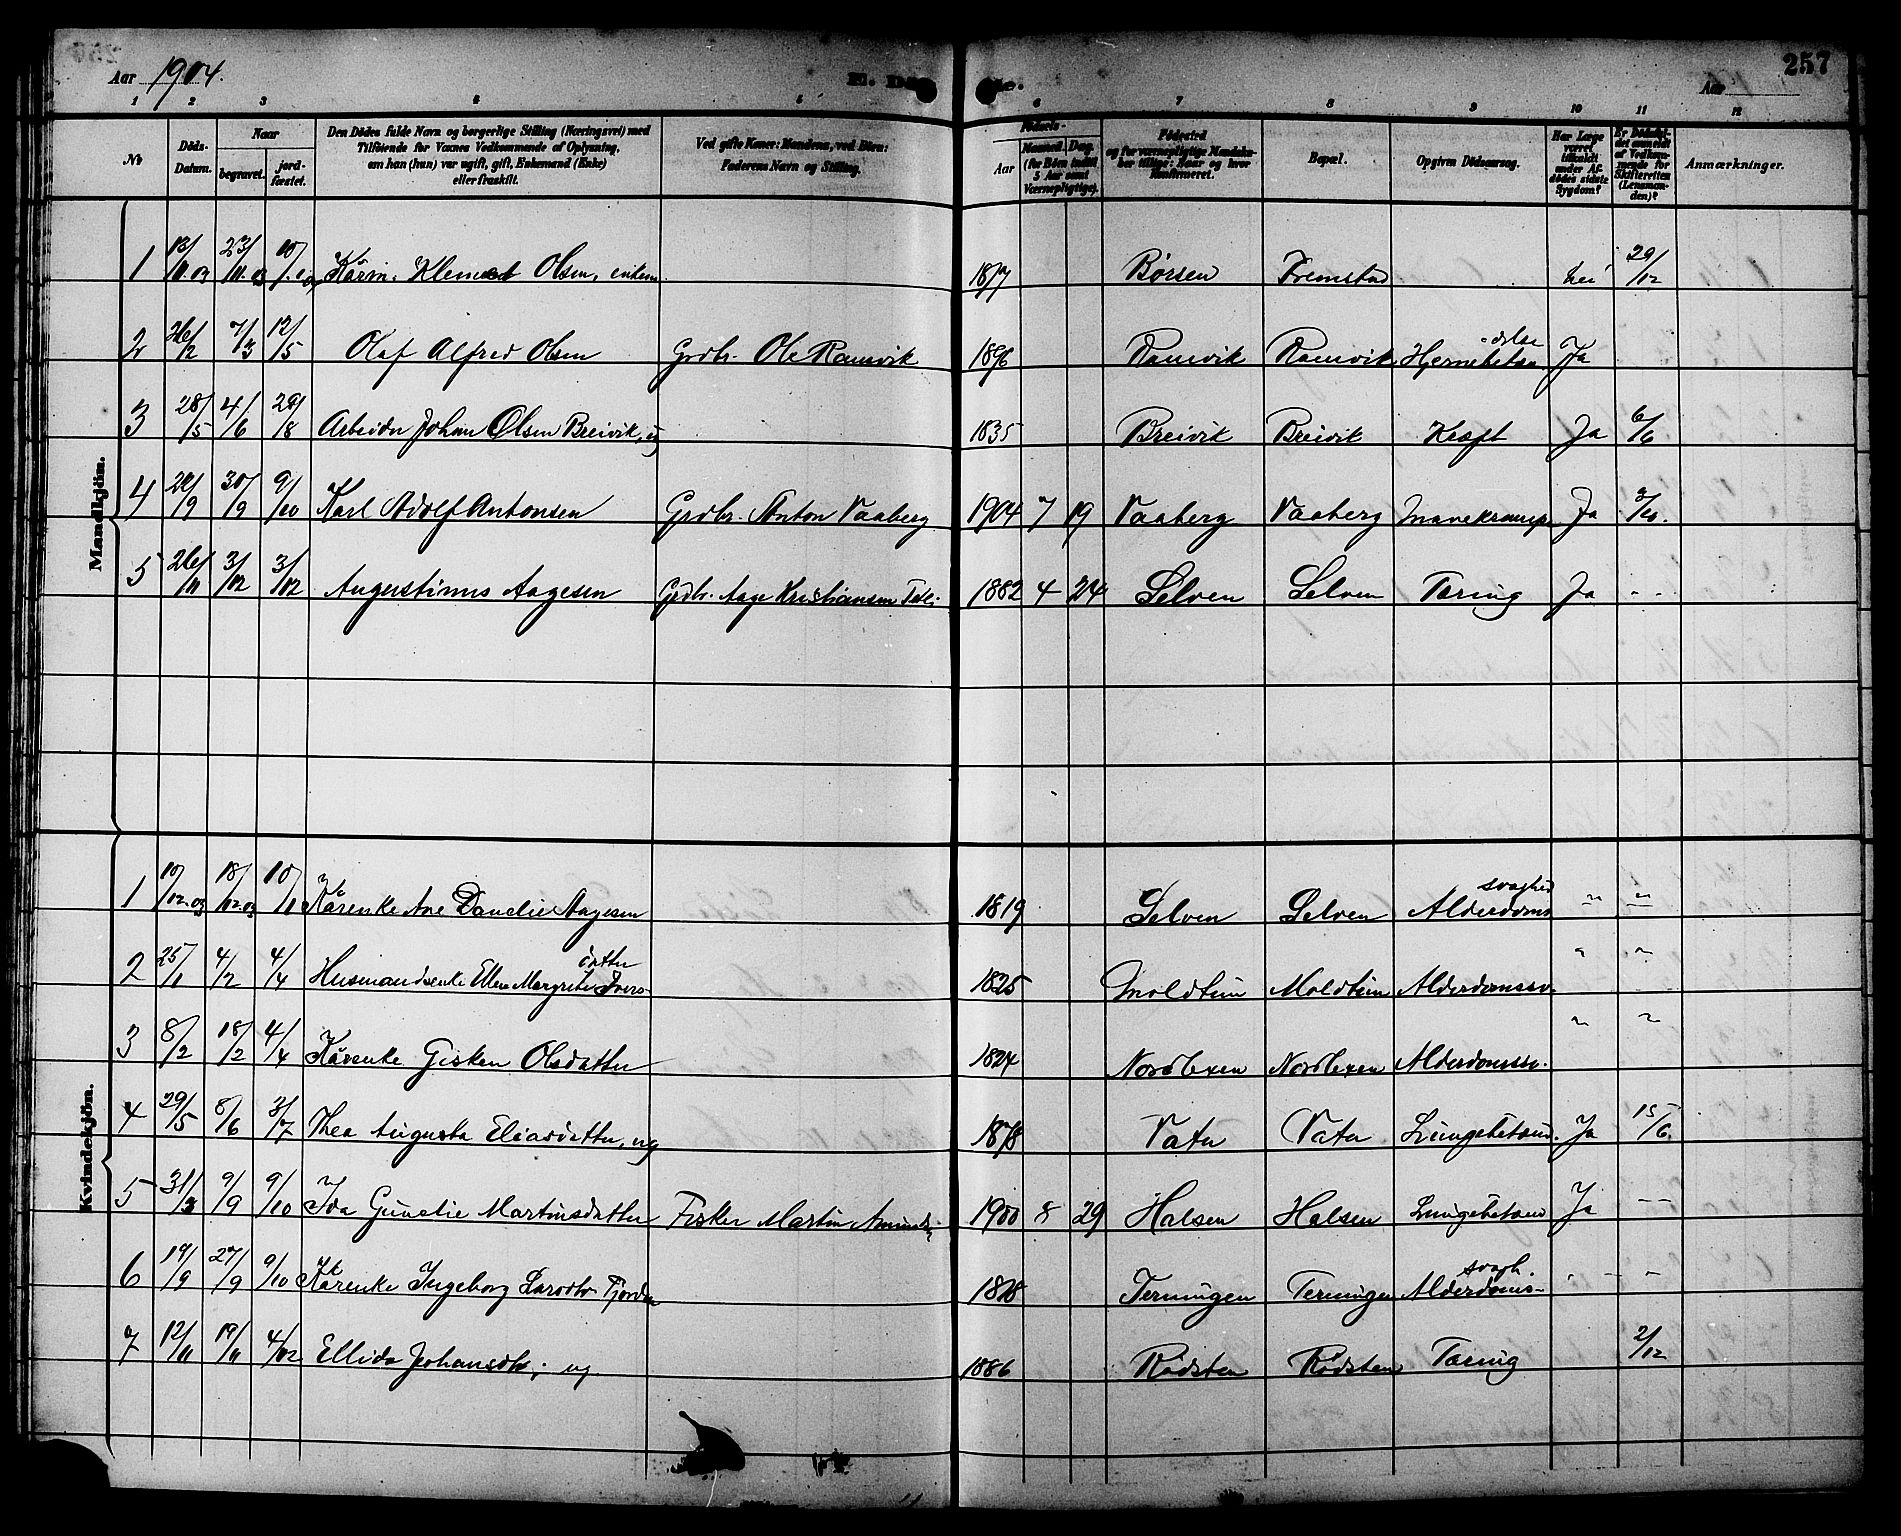 Aar 1904.
E. Dø
de.
Aar
257
1 2 3 4 5 6 7 8 9 10 11 12
No
Døds-Datum.
Naar
begravet.
jord-fæstet.
Den Dødes fulde Navn og borgerlige Stilling (Næringsvei) med
Tilføiende for Voxnes Vedkommende af Oplysning,
om han (hun) var ugift, gift, Enkemand (Enke)
eller fraskilt.
Ved gifte Koner: Mandens, ved Börn:
Faderens Navn og Stilling.
Fødsels-
Aar
Maaned. Dag.
(for Börn indtil
5 Aar samt
Værnepligtige).
Fødested
og for værnepligtige Mandska-
ber tillige: Naar og hvor
konfirmeret.
Bopæl.
Opgiven Dødsaarsag.
Har Læge
været
tilkaldt
under Af-
dødes sidste
Sygdom?
Er Dødsfal-
det anmeldt
af Vedkom-
mende for
Skifteretten
(Lensman-
den)?
Anmærkninger.
Mandkjön.
1 13/11.03 23/11.03 10/1.04 Klemet Olsen, enkem. Børsen Fremstad nei 29/12
2 26/2 7/3 12/5 Olaf Alfred Olsen Grdbr. Ole Ramvik 1896 Ramvik Ramvik Hjernebetæn- delse Ja
3 28/5 4/6 28/8 Arbeider Johan Olsen Breivik, ug 1835 Breivik Breivik Kræft Ja 6/6
4 22/9 30/9 9/10 Karl Adolf Antonsen Grdbr. Anton Vaaberg 1904 7 19 Vaaberg Vaaberg Mavekrampe Ja 3/10.
5 26/11 3/12 3/12 Augustinus Aagesen Grdbr. Aage Kristiansen 1882 4 24 Selven Selven Tæring Ja - -
Kvindekjön.
1 10/12.03 18/12.03 10/1 Kårenke Ane Danelie Aagesen 1819 Selven Selven Alderdoms svaghed " "
2 25/1 4/2 4/4 Husmandsenke Ellen Margrete Ivers- datter 1825 Moldtun Moldtun Alderdomssv. " "
3 8/2 18/2 4/4 Kårenke Gisken Olsdatter 1824 Nordlexen Nordlexen Alderdomssv. " "
4 29/5 8/6 3/7 Thea Augusta Eliasdatter, ug 1878 Vatn Vatn Lungebetænd. Ja 15/6.
5 31/8 9/9 9/10 Ida Gunelie Martinsdatter Fisker Martin 1900 8 29 Halsen Halsen Lungebetænd Ja - -
6 19/9 27/9 9/10 Kårenke Ingeborg Larsdtr. Fjorden 1818 Terningen Terningen Alderdoms- svagh. - - -
7 12/11 19/11 4/12 Ellida Johansdtr., ug. 1886 Rödsten Rödsten Tæring 2/12